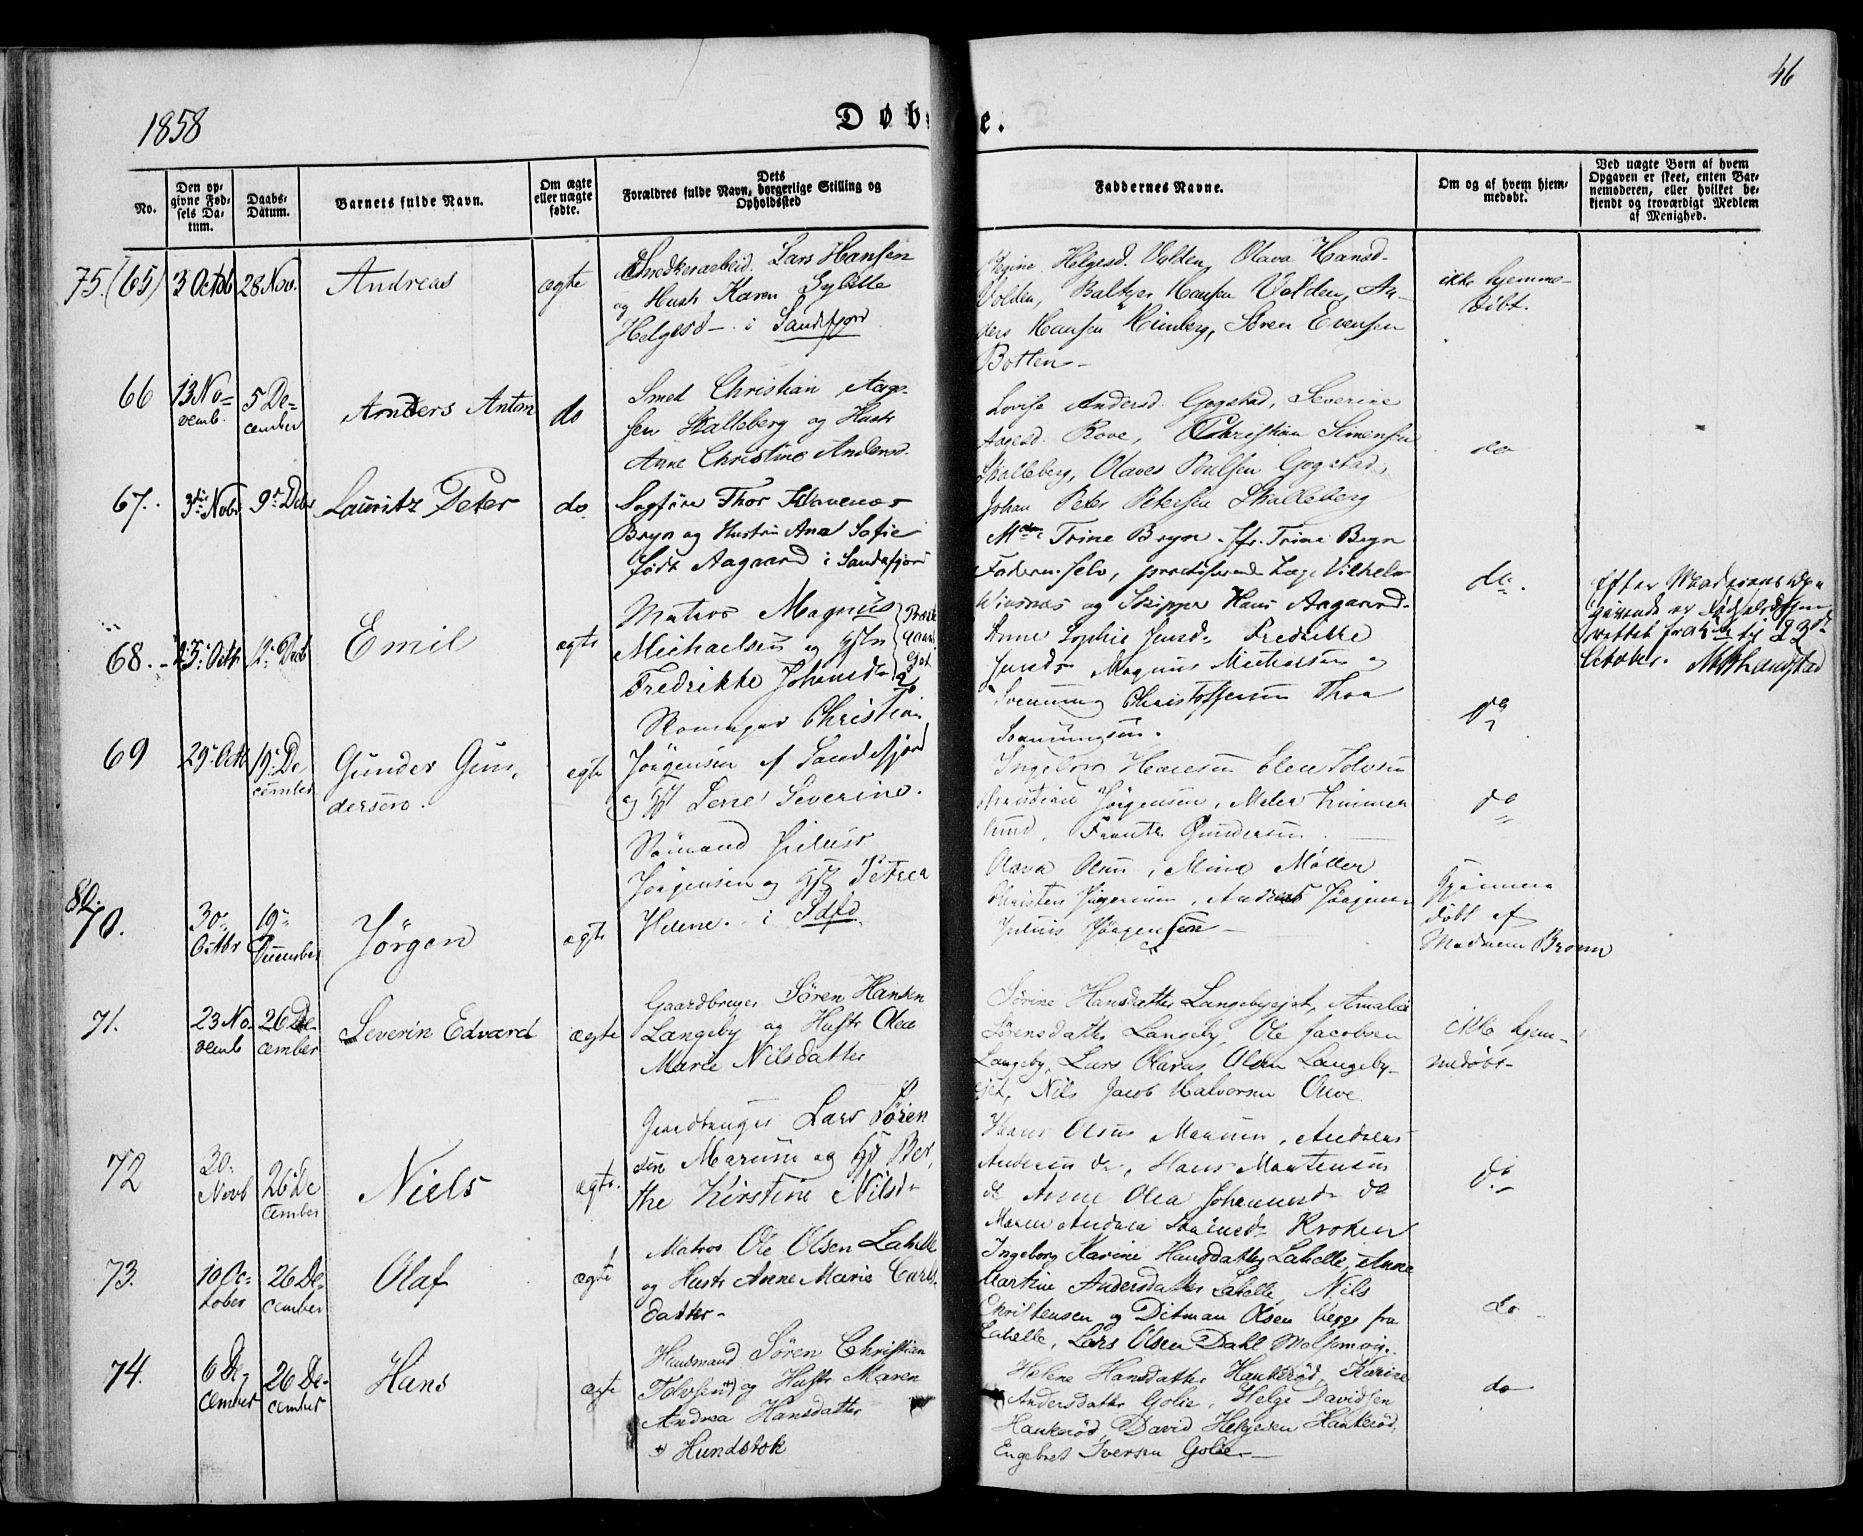 46
1858
Døbte.
No.
Den opgivne Fødsels Datum.
Daabs-Datum.
Barnets fulde Navn.
Om ægte eller uægte fødte.
Dets Forældres fulde Navn, borgerlige Stilling og Opholdssted
Faddernes Navne.
Om og af hvem hjemmedøbt.
Ved uægte Børn af hvem Opgaven er skeet, enten Barnemoderen, eller hvilket bekjendt og troværdigt Medlem af Menighed.
75. (65) 3 Octob 28 Nov. Andreas ægte
Lars Hansen
og Hustr Karen
Helgesd - i Sandefjord
Helgesd. Volden, Olava Hansd.
Volden, Hansen Volden, An-
ders Hansen Himberg, Søren Evensen
Botten -
ikke hjemme-
døbt.
66 13 No-
vemb. 5 De-
cember Anders Anton do
Smed Christian Aage-
sen Skalleberg og Hustr
Anne Christine Andersd.
Lovise Andersd. Gogstad, Severine
Aagesd. Rove, Christian Simensen
Skalleberg, Olaves Poulsen Gogstad,
Johan Peter Petersen Skalleberg
do
67. 3die Nobr 9de Debr Lauritz Peter do.
Sagfører Thor Klavenæs
Bryn og Hustru Ana Sofie
født Aagaard i Sandefjord
Mdm Trine Bryn. Jfr. Trine Bryn
Faderen selv, practiserende Læge Vilhelm
Wiesnæs og Skipper Hans Aagaard.
do.
68. 23. Octb 12. Decb Emil ægte
Matros Magnus
Michaelsen og Hst
Fredrikke Johansd
Anne Sophie Fredrikke
Magnus Michaelsen og
Christoffersen Thor
do
Efter
er
rettet fra til 23de
October.
69 29. Octb 19. De-
cember Gunder Gun-
dersen. ægte
Christian
Jörgensen af Sandefjord
og Hst Lene Severine.
Ingeborg Hansen Elen Tolvsen
Christian Jörgensen,
Frantz Gundersen
do
80.
70. 30.
Octbr 19.
December Jörgen ægte
Julius
Jörgensen og Hst Petrea
Helene. i Sdfd
Olava Olsen, Mina Møller
Christen Jörgensen, Andreas Jörgensen
Julius Jörgensen
Hjemme
døbt af
Madame Bromn
71. 23 No-
vemb 26 De-
cember Severin Edvard ægte
Gaardbruger Sören Hansen
Langeby og Hustr Olea
Marie Nilsdatter
Sörine Hansdatter Langebyejet, Amalie
Sörensdatter Langeby, Ole Jacobsen
Langeby, Lars Olavus Olsen Langeby-
ejet, Nils Jacob Halvorsen
ikke hjem-
medøbt
72 30.
Novb 26 De
cember Niels ægte.
Gaardbruger Lars Sören
sen Marum og Hst Ber-
the Kirstine Nilsd
Hans Olsen Marum, Andreas
Andersen do, Hans Mortensen
do Anne Olea Johannesd do
Maren Andrea Kroken
do
73. 10 Oc-
tober 26 De-
cember Olaf ægte
Matros Ole Olsen Lahelle
og Hustr Anne Marie Carls-
datter -
Ingeborg Karine Hansdatter Lahelle, Anne
Martine Andersdatter Lahelle, Nils
Christensen og Ditman Olsen begge fra
Lahelle, Lars Olsen Dahl
do
74. 6 De-
cember 26 De-
cember Hans ægte
Huusmand Sören Christian
Tolvsen og Hustr Maren
Andrea Hansdatter
Hundstok
Helene Hansdatter Haukerød, Karine
Andersdatter Golie, Helge Davidsen
Haukerød, David Helgesen Haukerød,
Engebret Iversen Golie
do